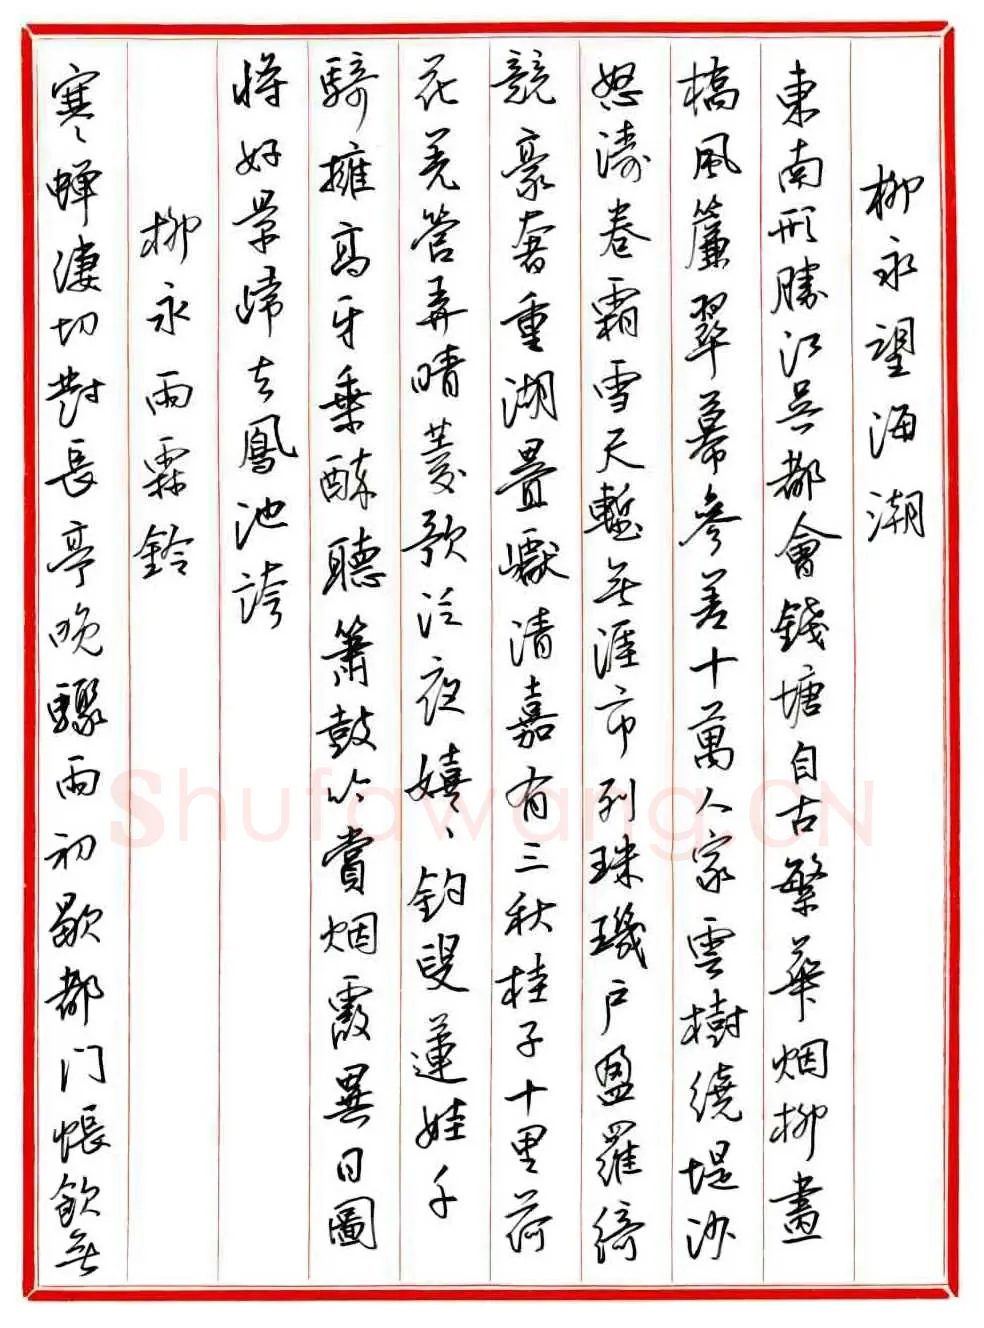 柳永望海潮
東南形勝江吴都會錢塘自古繁華烟柳畫
橋風簾翠幕參差十萬人家雲樹繞堤沙
怒濤卷霜雪天塹無涯市列珠璣户盈羅綺
競豪奢重湖疊巘清嘉有三秋桂子十里荷
花羌管弄晴菱歌泛夜嬉〻釣叟蓮娃千
騎擁高牙乘醉聽簫鼓吟賞烟霞異日圖
将好景歸去鳳池誇
柳永雨霖鈴
寒〻蟬淒切對長亭晚驟雨初歇都门帳飲無
Shufawang.CN